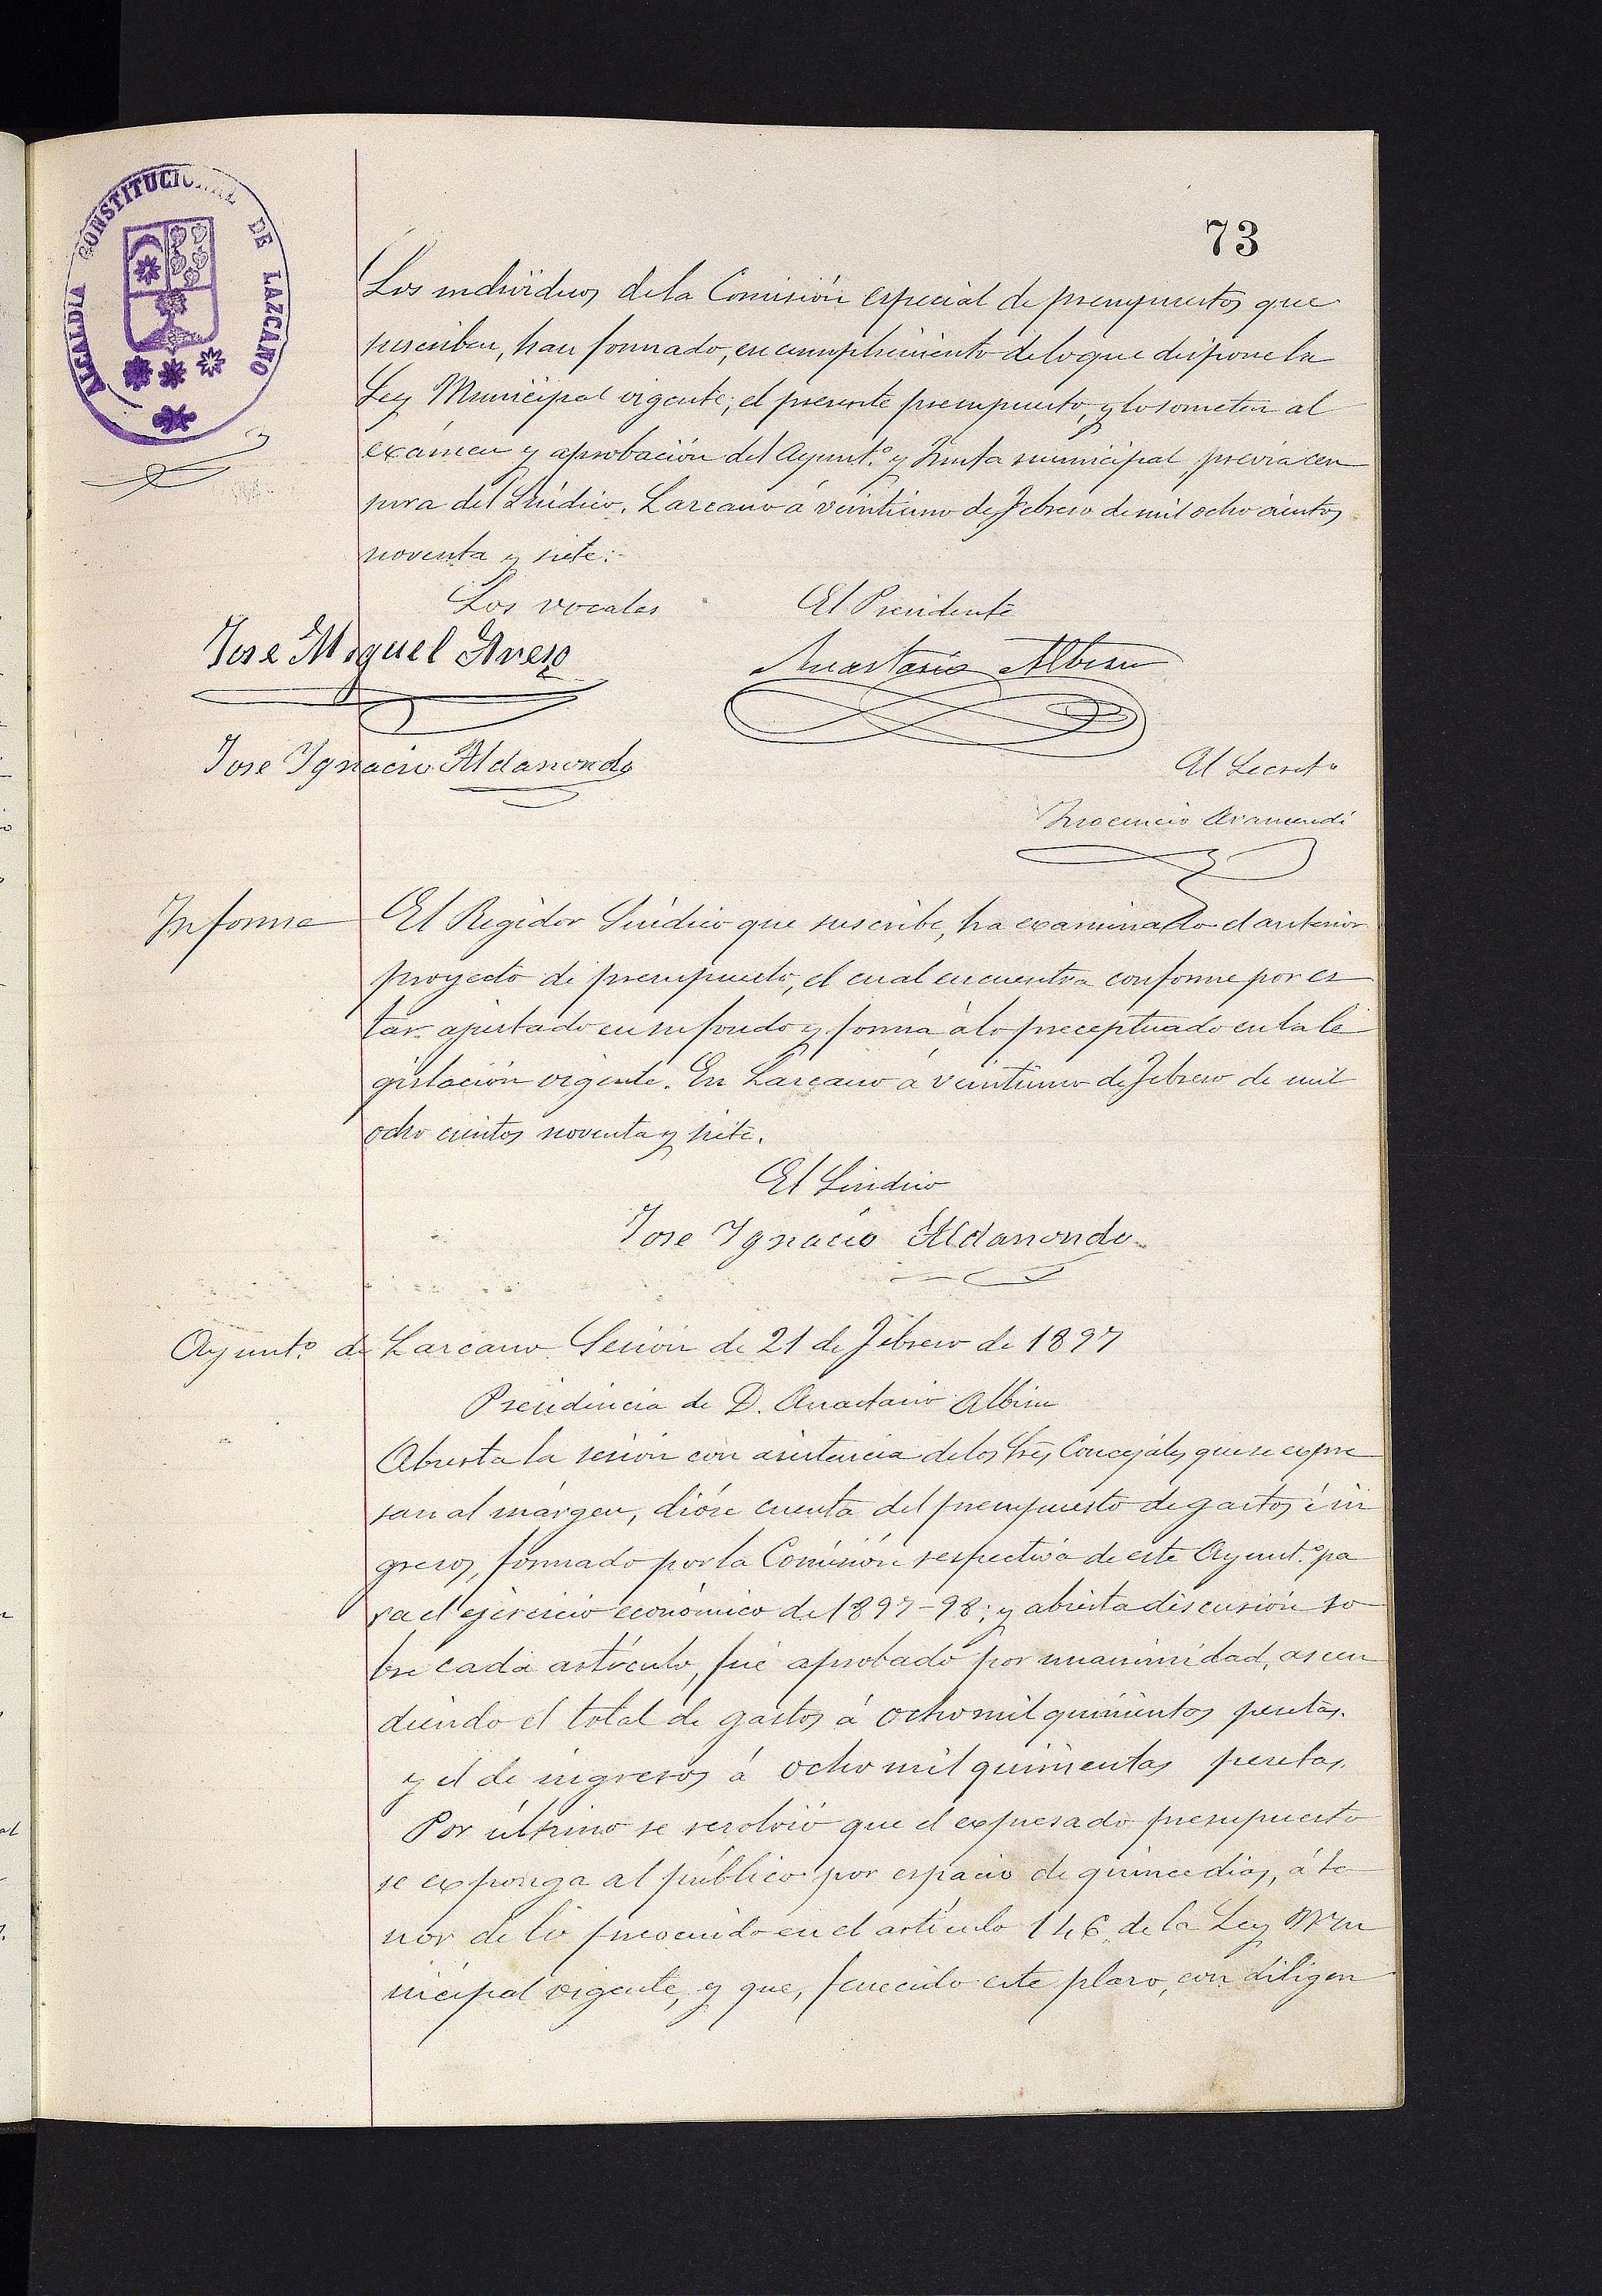 73
ALCALDIA CONSTITUCIONAL DE LAZCANO
Los individuos de la Comisión especial de presupuestos que
suscriben, han formado, en cumplimiento de lo que dispone la
Ley Municipal vigente; el presente presupuesto, y lo someten al
exámen y aprobación del Ayunt.º y Junta municipal, prévia cen
sura del Síndico. Lazcano á veintiuno de Febrero de mil ocho cientos
noventa y siete:-
Los vocales El Presidente
Jose Miguel Anastasio Albisu
Jose Ignacio Aldanondo El Secret.º
Inocencio Aramendi
Informe El Regidor Síndico que suscribe, ha examinado el anterior
proyecto de presupuesto, el cual encuentra conforme por es
tar ajustado en su fondo y forma á lo preceptuado en la le
gislación vigente. En Lazcano á veintiuno de Febrero de mil
ocho cientos noventa y siete.
El Síndico
Jose Ignacio Aldanondo
Ayunt.º de Lazcano Sesión de 21 de Febrero de 1897
Presidencia de D. Anastasio Albisu
Abierta la sesión con asistencia de los Sres Concejales que se expre
san al márgen, dióse cuenta del presupuesto de gastos é in
gresos, formado por la Comisión respectiva de este Ayunt.º pa
ra el ejercicio económico de 1897-98; y abierta discusión so
bre cada artículo, fué aprobado por unanimidad, ascen
diendo el total de gastos á ocho mil quinientos pesetas.
y el de ingresos á ocho mil quinientas pesetas.
Por último se resolvió que el expresado presupuesto
se exponga al público por espacio de quince dias, á te
nor de lo prevenido en el artículo 146 de la Ley Mu
nicipal vigente, y que, fenecido este plazo, con diligen